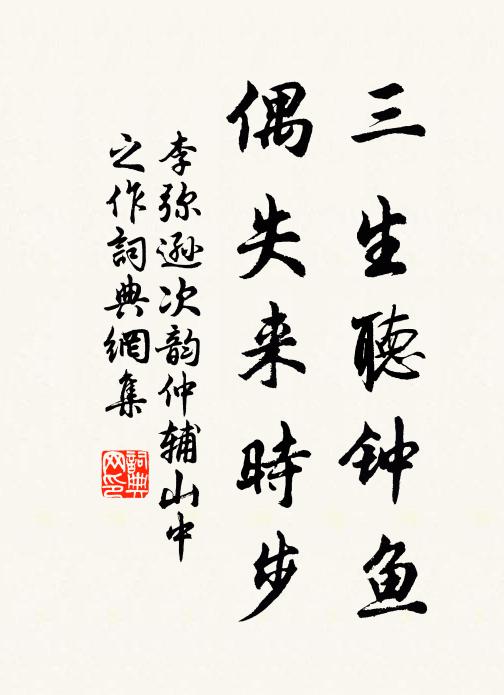 三生聽钟鱼
偶失来時步
李弥逊次韵仲辅山中
之作詞典網集
詞典网印